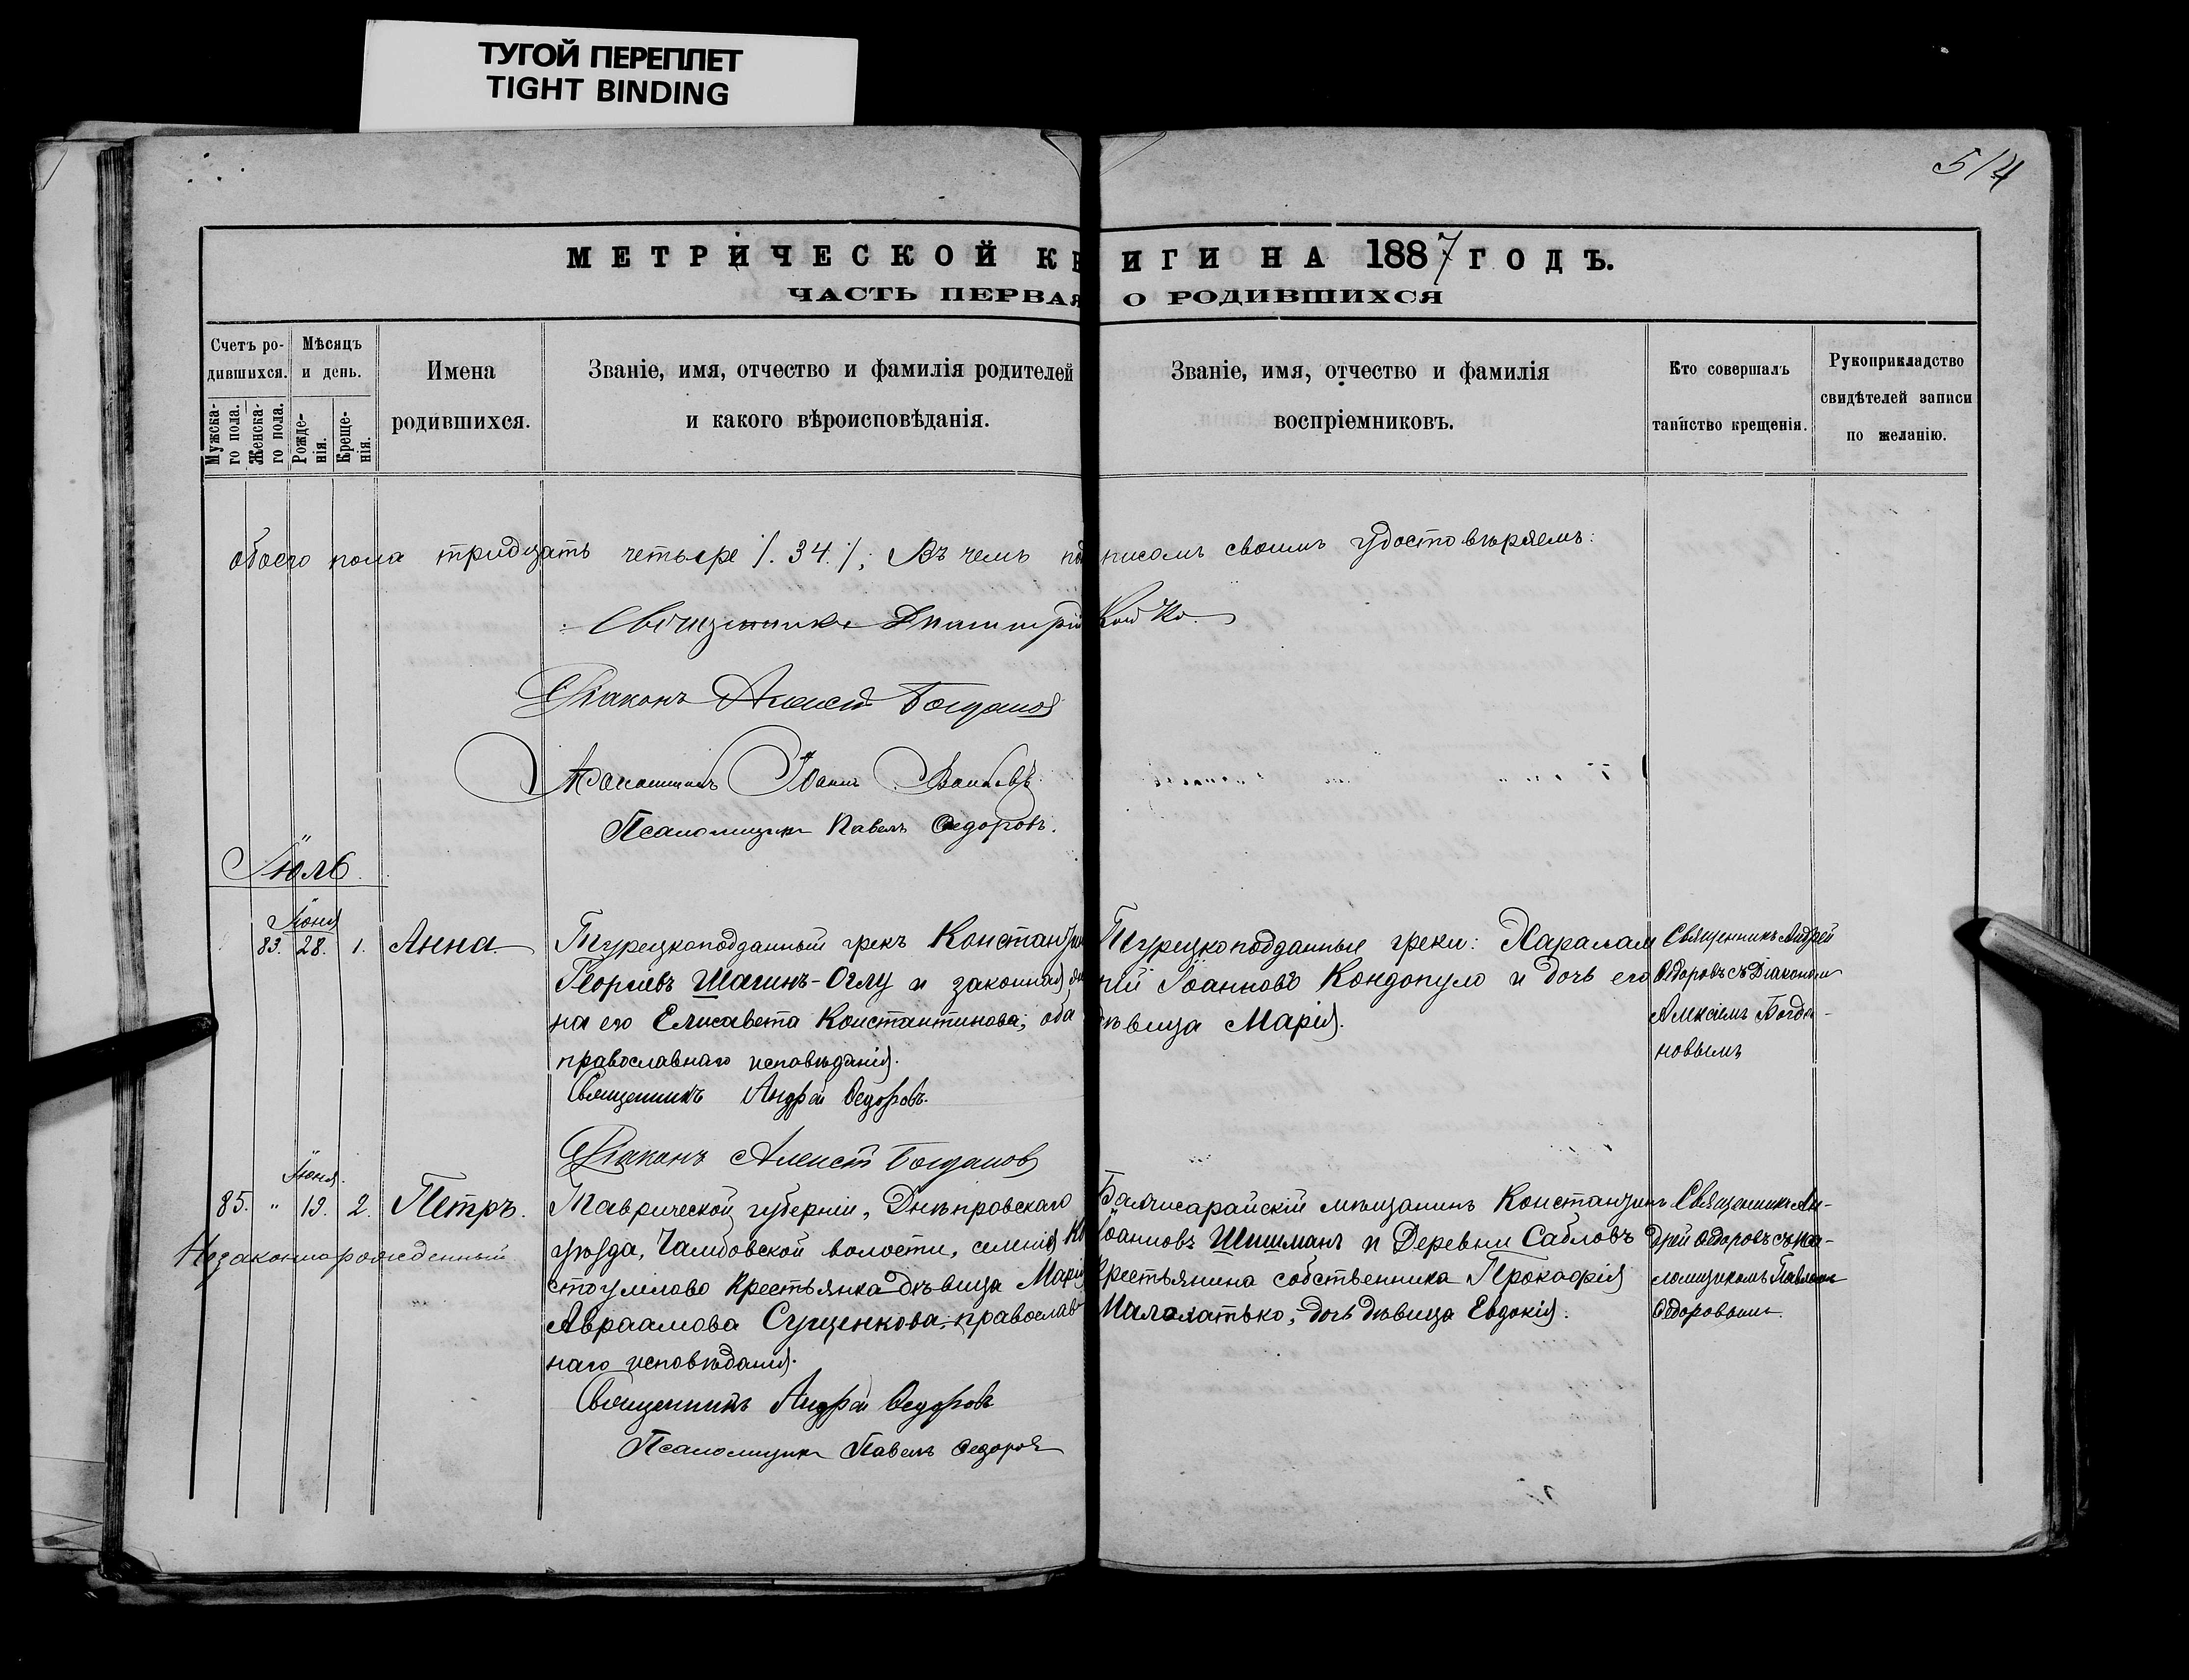 ТУГОЙ ПЕРЕПЛЕТ
TIGHT BINDING
514
МЕТРИЧЕСКОЙ КНИГИ НА 1887 ГОДЪ.
ЧАСТЬ ПЕРВАЯ О РОДИВШИХСЯ
Счетъ ро-
дившихся.
Мужска-
го пола.
Женска-
го пола.
Мѣсяцъ
и день.
Рожде-
нія.
Креще-
нія.
Имена
родившихся.
Званіе, имя, отчество и фамилія родителей
и какого вѣроисповѣданія.
Званіе, имя, отчество и фамилія
воспріемниковъ.
Кто совершалъ
таинство крещенія.
Рукоприкладство
свидѣтелей записи
по желанію.
обоего пола тридцать четыре /. 34. /; Въ чемъ подписомъ своимъ удостовѣряемъ:
Священникъ Димитрій Койко
Діаконъ Алексій Богданов
Іоаннъ
Псаломщикъ Павелъ Ѳедоровъ.
Іюль
Іюня
83. 28. 1. Анна
Турецкоподданный грекъ Константин
Георгіевъ Шагинъ-Оглу и законная же
на его Елисавета Константинова; оба
православнаго исповѣданія.
Священникъ Андрей Ѳедоровъ.
Діаконъ Алексій Богданов
Турецкоподданные греки: Харалам
пій Іоанновъ Кондопуло и дочь его
дѣвица Марія.
Священникъ Андрей
Ѳедоровъ съ Діакономъ
Алексіемъ Богда-
новымъ
Іюня.
85. " 19. 2. Петръ.
Незаконнорожденный
Таврической губерніи, Днѣпровскаго
уѣзда, Чалбовской волости, селенія Ко
стогулово Крестьянка дѣвица Марія
Авраамова Сущенкова, православ
наго исповѣданія.
Священникъ Андрей Ѳедоровъ
Псаломщикъ Павелъ Ѳедоров
Бахчисарайскій мѣщанинъ Константинъ
Іоанновъ Шишманъ и Деревни Сабловъ
Крестьянина собственника Прокофія
дочь дѣвица Евдокія.
Священникъ Ан-
дрей Ѳедоровъ съ Пса-
ломщикомъ Павломъ
Ѳедоровымъ.